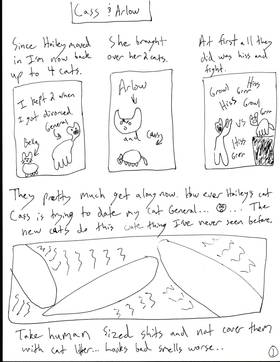 Cass & Arlow
Since Hailey moved
in I'm now back
up to 4 cats.
I kept 2 when
I got divorced
General
Bella
She brought
over her 2 cats.
Arlow
and Cass
At first all they
did was hiss and
fight.
Growl Hiss
Grrr Growl
Hiss Growl
Grrr
VS
Hiss
Grrr
They pretty much get along now. How ever Hailey's cat
Cass is trying to date my cat General... The
new cats do this cute thing I've never seen before.
Take human sized shits and not cover them
with cat litter... Looks bad smells worse..
1